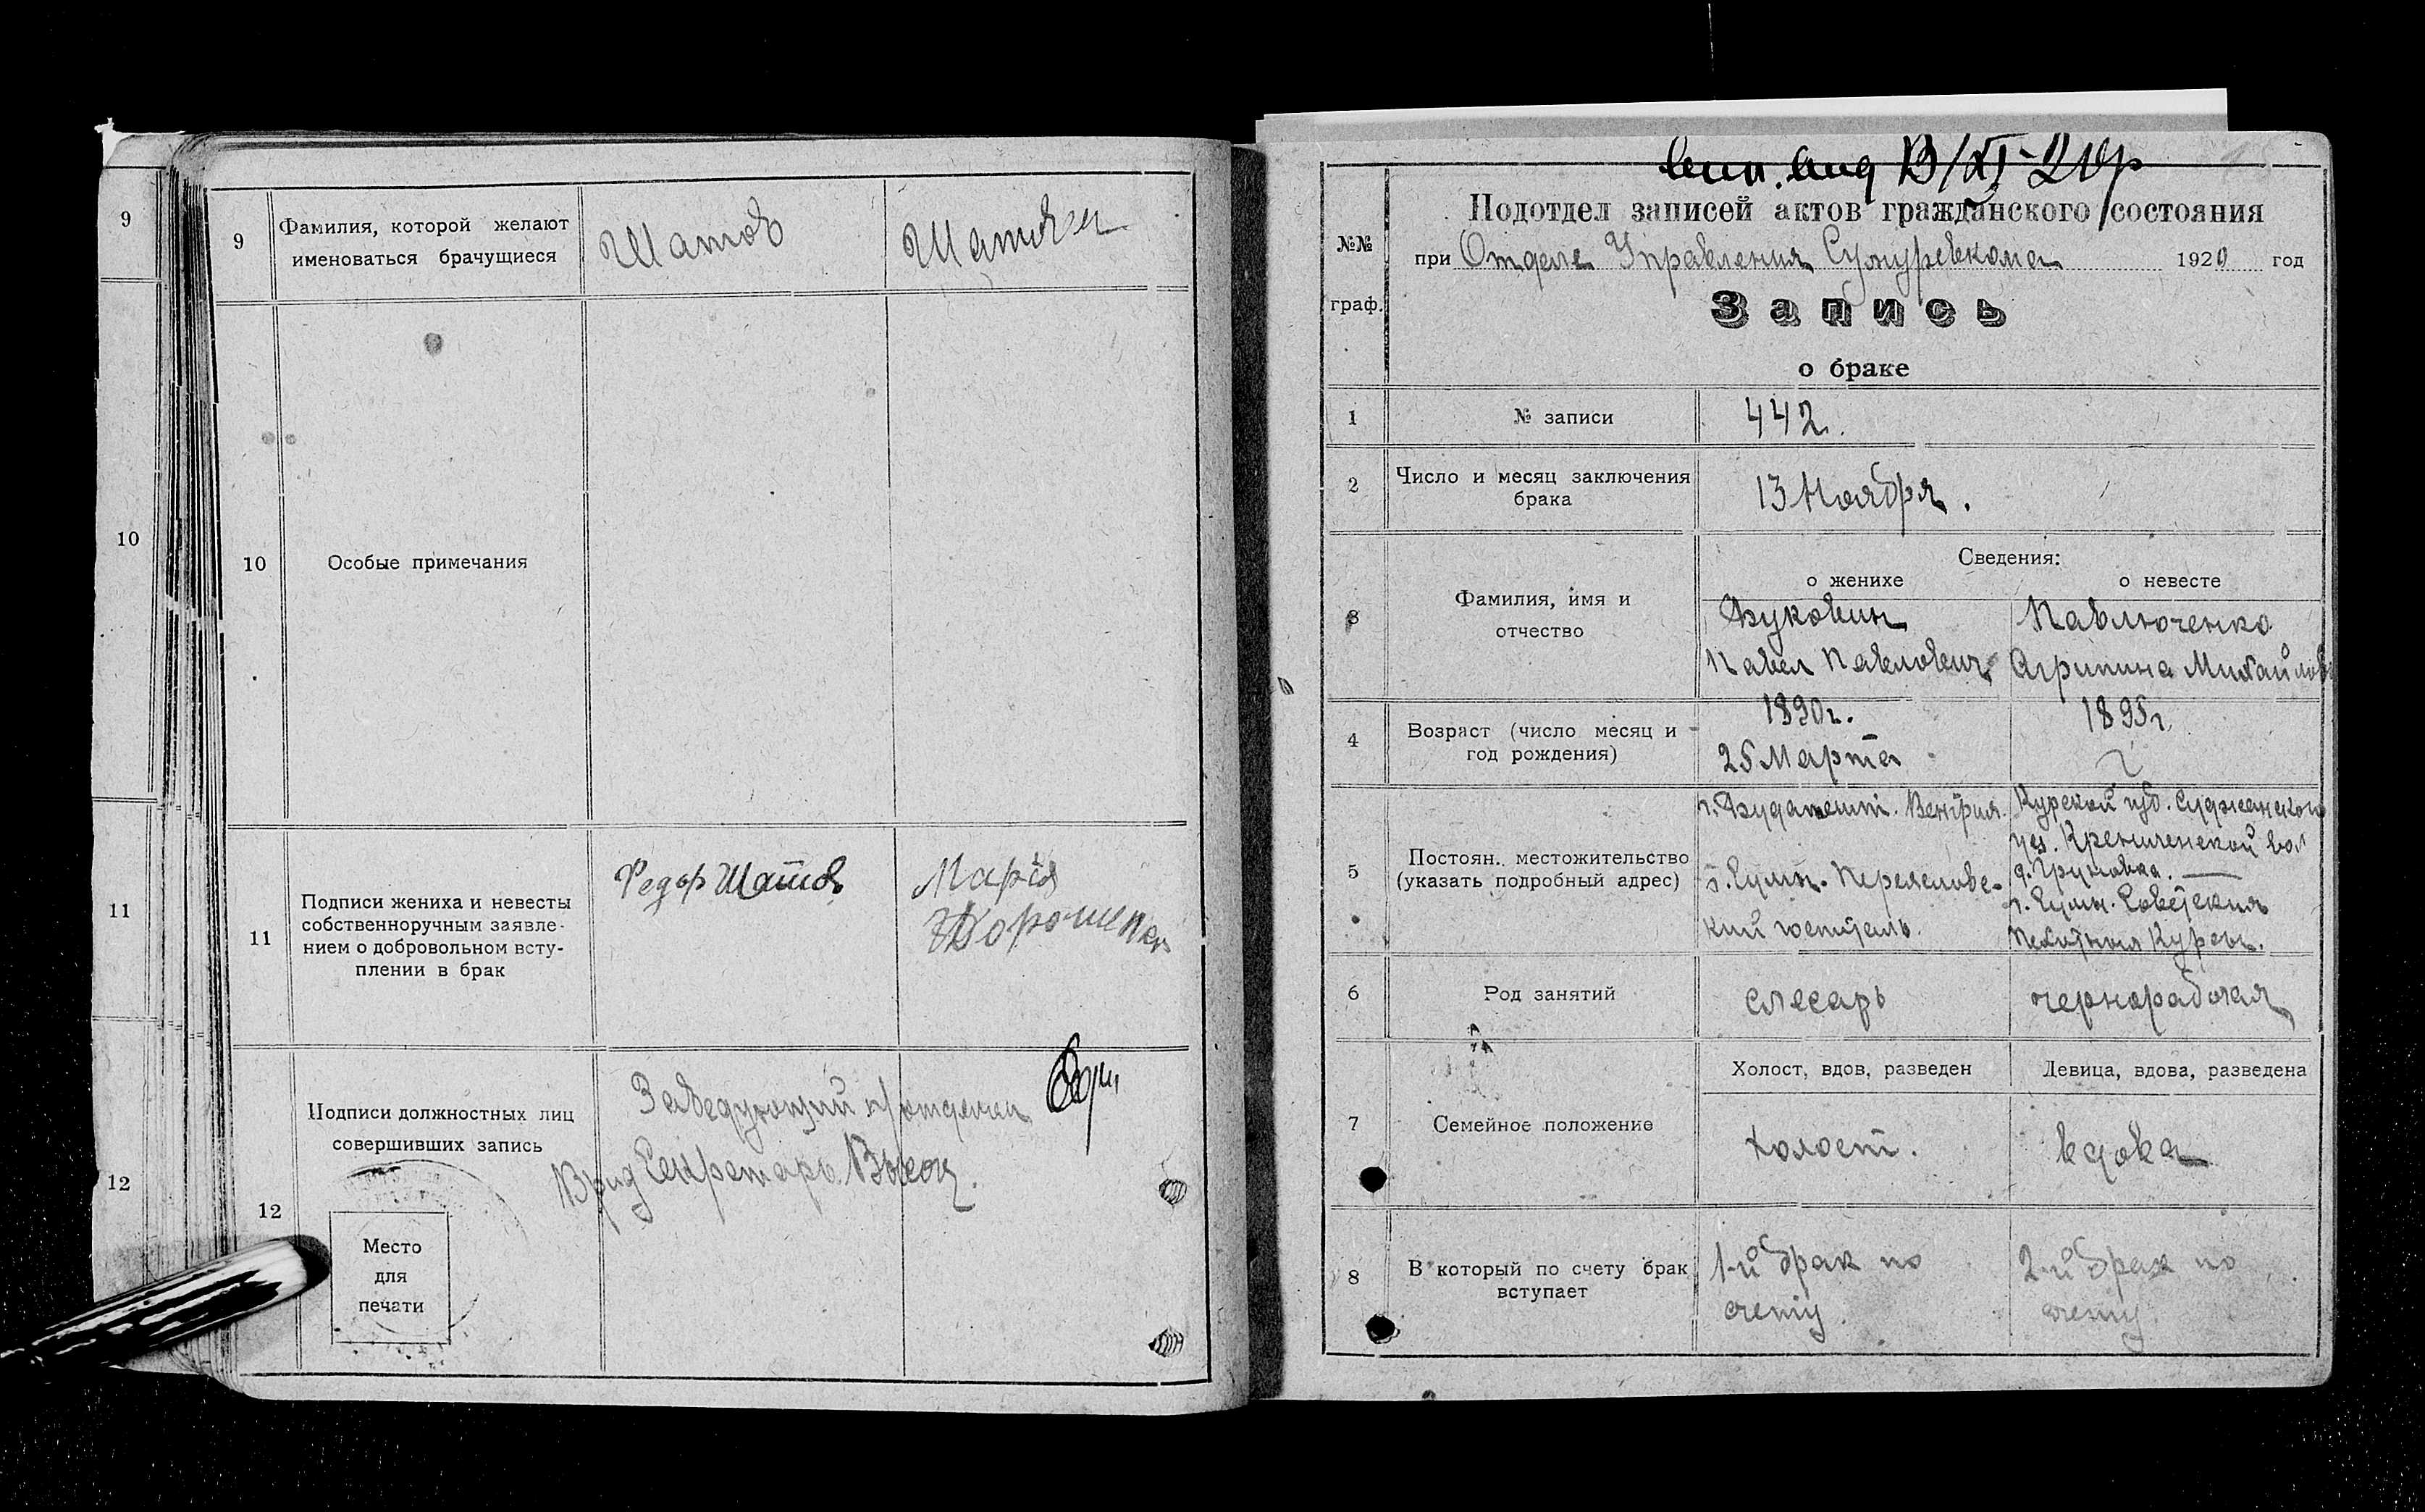 9
10
11
12
9
Фамилия, которой желают
именоваться брачущиеся
Шатов
Шатова
10
Особые примечания
11
Подписи жениха и невесты
собственноручным заявле-
нием о добровольном всту-
плении в брак
Федор Шатов
Мария
12
Подписи должностных лиц
совершивших запись
Заведующий п/отделом
Врид Секретарь
Место
для
печати
№№
граф.
Подотдел записей актов гражданского состояния
при Отделе Управления Сумуревкома 1920 год
Запись
о браке
1
№ записи
442.
2
Число и месяц заключения
брака
13 Ноября.
3
Фамилия, имя и
отчество
Сведения:
о женихе
о невесте
Буковин
Павел Павлович
Павлюченко
Агрипина Михайлов
4
Возраст (число месяц и
год рождения)
1890 г.
25 Марта
1895 г
5
Постоян. местожительство
(указать подробный адрес)
г. Будапешт. Венгрия.
г. Сумы. Переяслов-
кий
Курской губ. Суджанского
уез. вол
д. Груновка.
г. Сумы. Советския
Пехотныя Курсы.
6
Род занятий
слесарь
чернорабочая
7
Семейное положение
Холост, вдов, разведен
Девица, вдова, разведена
холост.
вдова
8
В который по счету брак
вступает
1-й брак по
счету.
2-й брак по
счету.